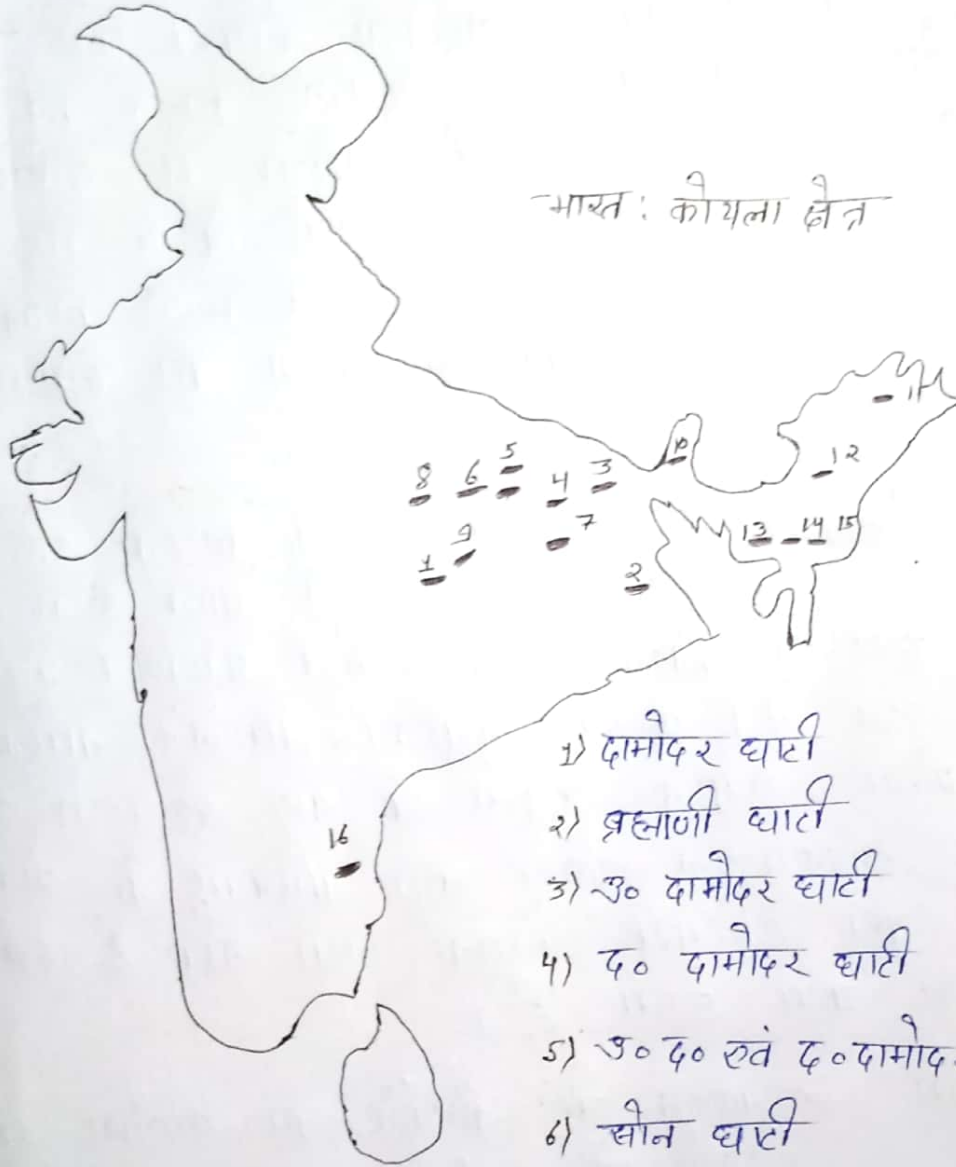 भारत: कोयला क्षेत्र
11
10
12
5
8 6 4 3
7
9
1
2
13 14 15
16
1) दामोदर घाटी
२) ब्रह्माणी घाटी
3) उ० दामोदर घाटी
4) द० दामोदर घाटी
5) उ० द० एवं द० दामोद
6) सोन घाटी